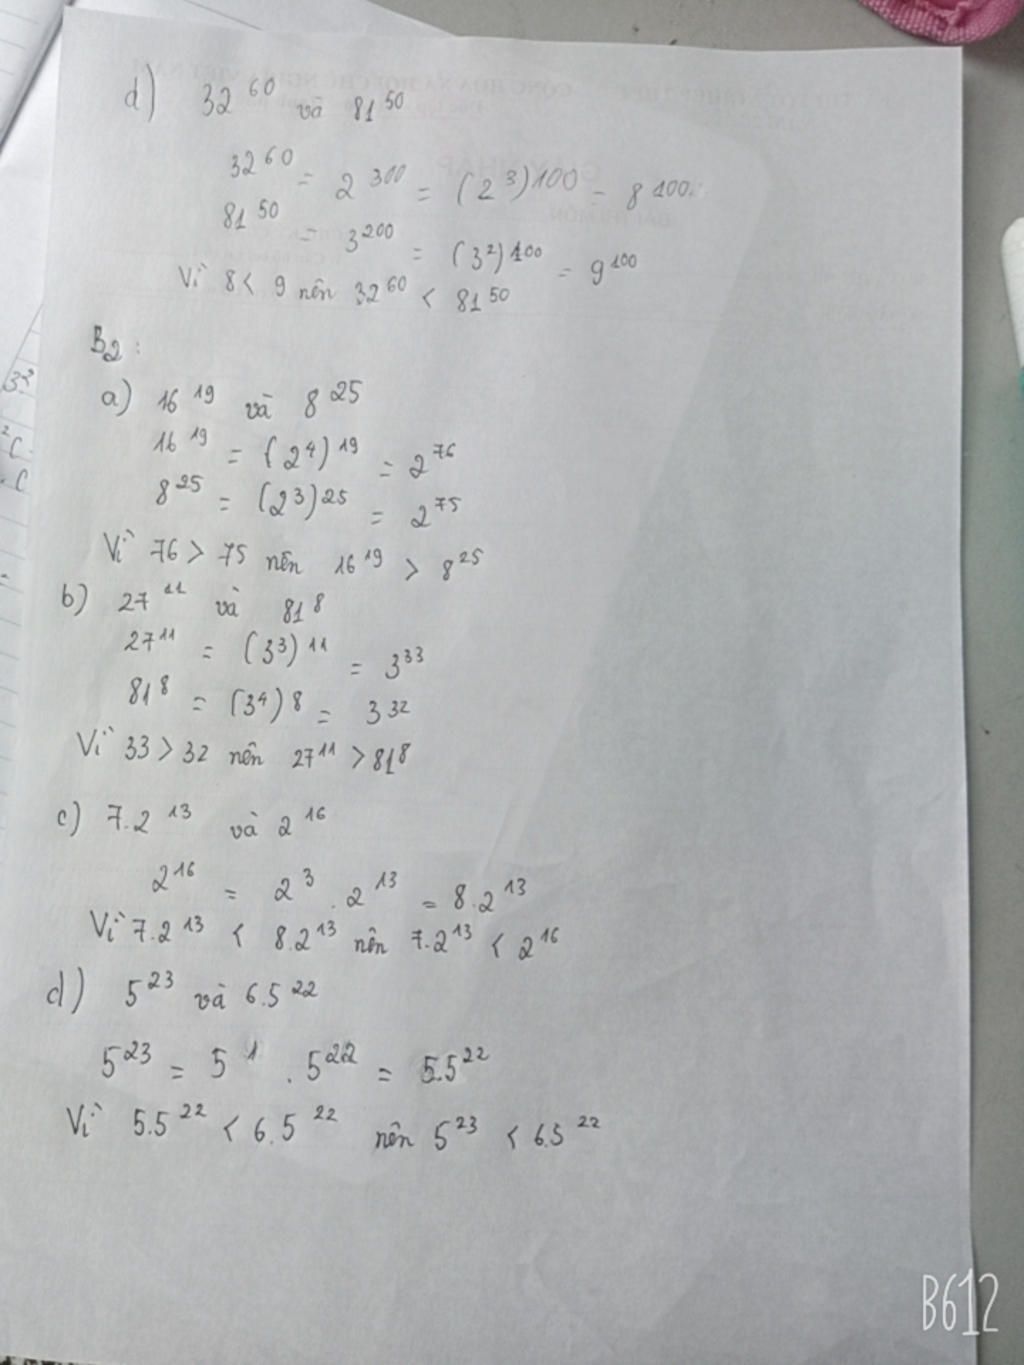 d) 32^60 và 81^50
32^60 = 2^300 = (2^3)^100 = 8^100
81^50 = 3^200 = (3^2)^100 = 9^100
Vì 8 < 9 nên 32^60 < 81^50
B2:
a) 16^19 và 8^25
16^19 = (2^4)^19 = 2^76
8^25 = (2^3)^25 = 2^75
Vì 76 > 75 nên 16^19 > 8^25
b) 27^11 và 81^8
27^11 = (3^3)^11 = 3^33
81^8 = (3^4)^8 = 3^32
Vì 33 > 32 nên 27^11 > 81^8
c) 7.2^13 và 2^16
2^16 = 2^3 . 2^13 = 8.2^13
Vì 7.2^13 < 8.2^13 nên 7.2^13 < 2^16
d) 5^23 và 6.5^22
5^23 = 5^1 . 5^22 = 5.5^22
Vì 5.5^22 < 6.5^22 nên 5^23 < 6.5^22
B612